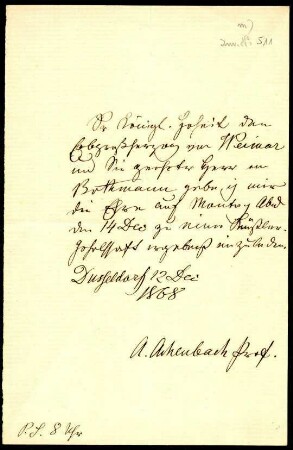 Inv. No. 511
Sr Königl. Hoheit den
Erbgroßherzog von Weimar
und Sie geehrter Herr von
Bothmann gebe ich mir
die Ehre auf Montag Abd
den 14 Dec zu einer Künstler-
Gesellschaft ergebenst einzuladen.
Dusseldorf 12 Dec
1868
A. Achenbach Prof.
P.S. 8 Uhr